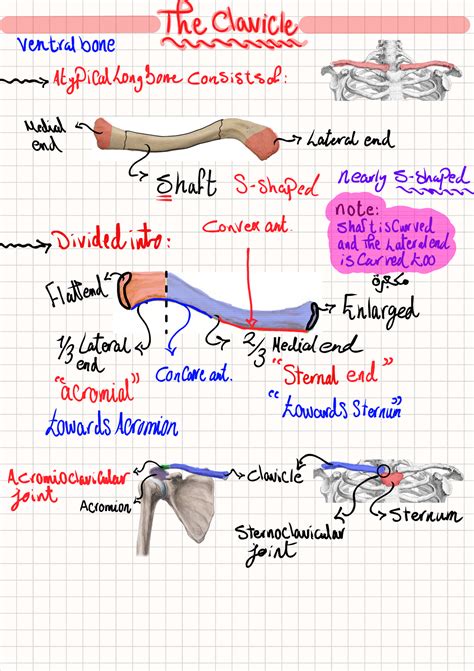 The Clavicle
Ventral bone
Atypical Long bone consists of:
Medial
end
Lateral end
Shaft S-shaped
nearly S-shaped
note:
Shaft is Curved
and The Lateral end
is Curved too
مكبرة
Convex ant.
Divided into:
Flattend
Enlarged
1/3 Lateral
end
2/3 Medial end
"acromial"
Concave ant.
"Sternal end"
towards Acromion
"towards Sternum"
Acromioclavicular
joint
Acromion
Clavicle
Sternoclavicular
joint
Sternum